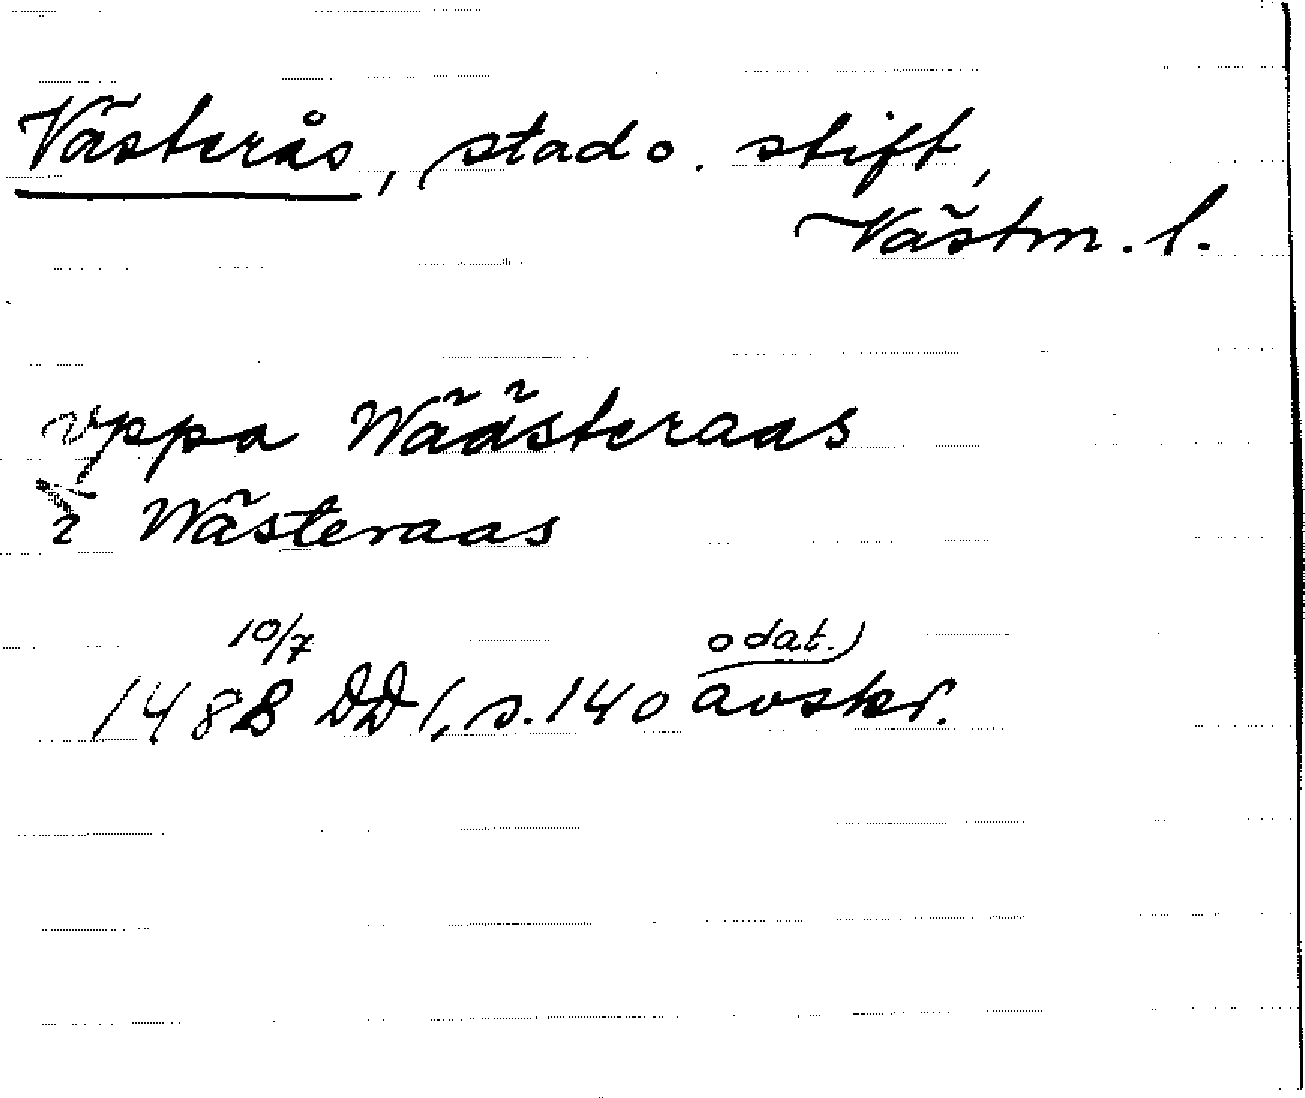 Västerås, stad o. stift,
Västm. l.
vppa Wäästeraas
i Wästeraas
1488 10/7 DD 1, s. 140 odat. avskr.